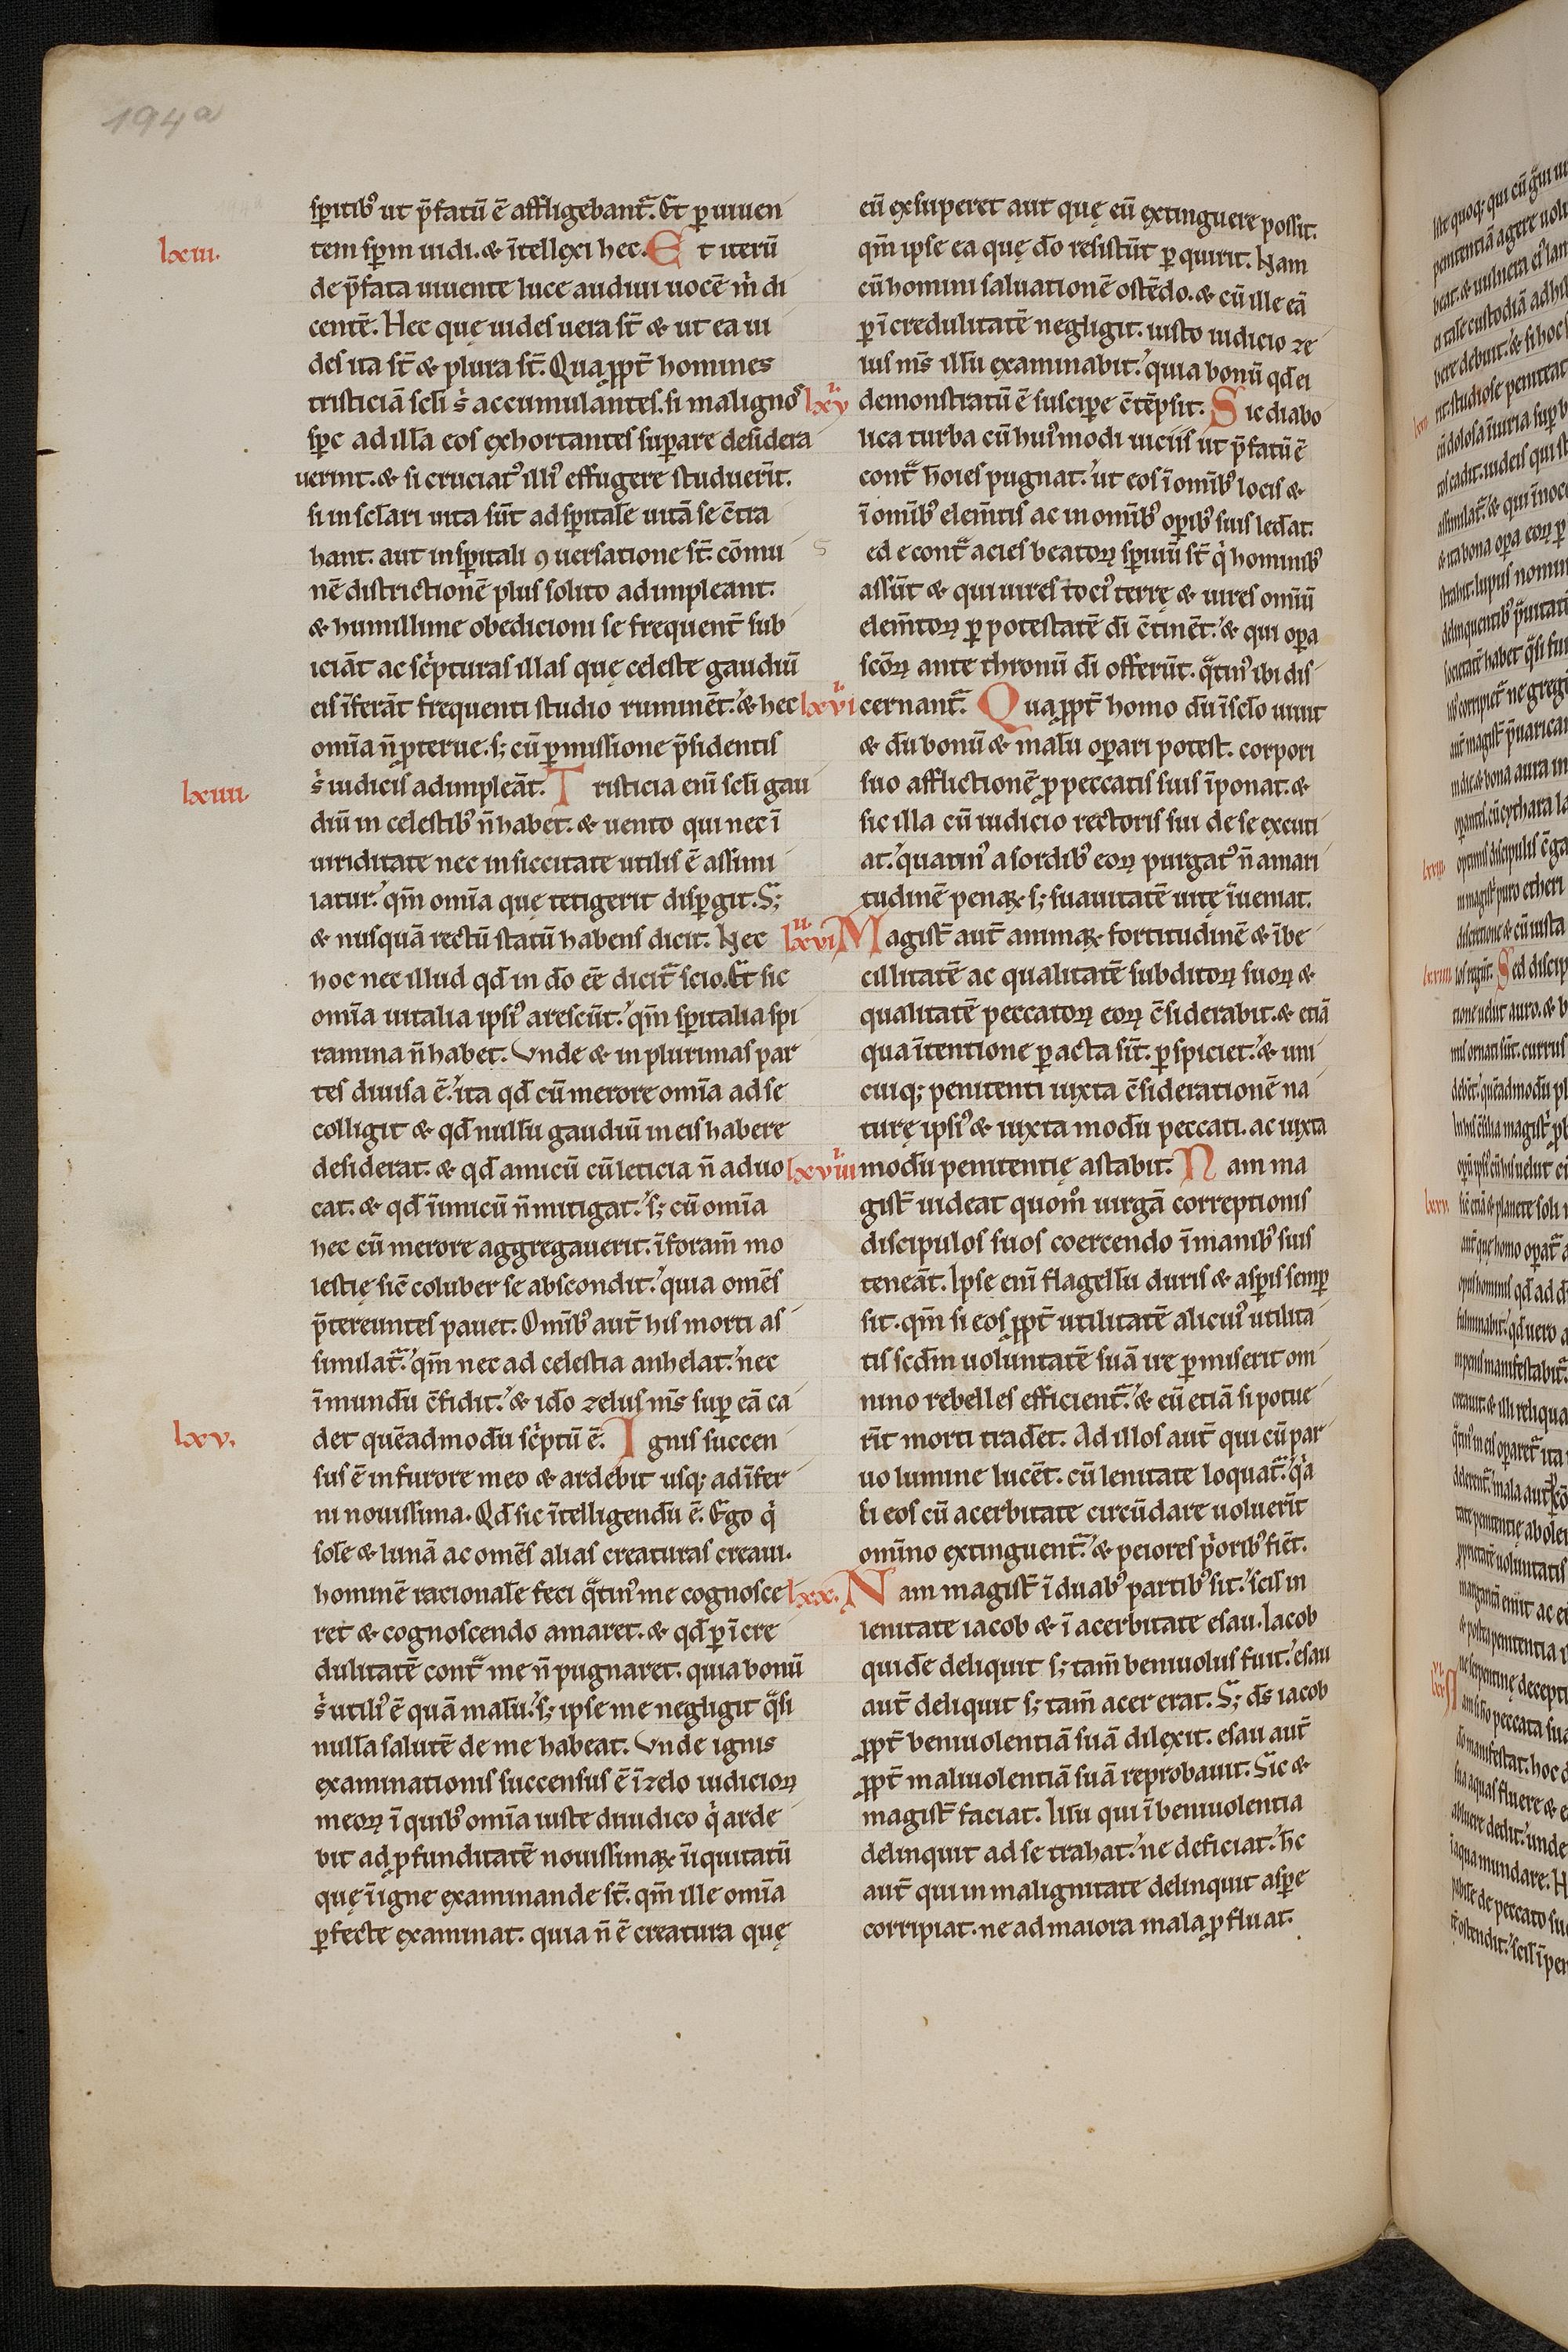 194a
spiritib᷒ ut p̄fatū ē affligebant᷑. Et ꝑ uiuen
lxiii.
tem spm̄ uidi. & ītellexi hec. Et iterū
de p̄fata uiuente luce audiui uocē m̊ di
centē. Hec que uides uera st̄ & ut ea ui
des ita st̄ & plura st̄. Quaꝓpt̄ homines
tristiciā scl̄i s᷒ accumulantes. si malignos
spc̄ ad illā eos exhortantes supare desidera
uerint. & si cruciat᷒ illi᷒ effugere studuerīt.
si in scl̄ari uita sūt ad spiritale uitā se ctr̄a
hant. aut in spiritali ꝯuersatione st̄. cōmu
nē districtionē plus solito adimpleant.
& humillime obedicioni se frequent̄ sub
iciāt ac sc̄pturas illas que celeste gaudiū
eis īferāt frequenti studio ruminēt. & hec
omīa n̄ ꝓterue. s; cū ꝑmissione p̄sidentis
lxiiii.
s᷒ iudicis adimpleāt. Tristicia eni scl̄i gau
diū in celestib᷒ n̄ habet. & uento qui nec ī
uiriditate nec in siccitate utilis ē assimi
latur. qm̄ omīa que tetigerit disꝑgit. S;
& nusquā rectū statū habens dicit. Nec
hoc nec illud qd̄ in dō ēē dicit᷑ scio. Et sic
omīa uitalia ipsi᷒ arescūt. qm̄ spiritalia spi
ramina n̄ habet. Vnde & in plurimas par
tes diuisa ē. ita qd̄ cū merore omīa ad se
colligit & qd̄ nullū gaudiū in eis habere
desiderat. & qd̄ amicū cū leticia n̄ aduo
cat. & qd̄ īimicū n̄ mitigat. s; cū omīa
hec cū merore aggregauerit. ī foram̄ mo
lestie sic̄ coluber se abscondit. quia omēs
p̄tereuntes pauet. Omīb᷒ aut̄ his morti as
similat᷑. qm̄ nec ad celestia anhelat. nec
ī mundū c̄fidit. & idō zelus ms̄ sup eā ca
lxv.
det quēadmodū sc̄ptū ē. Ignis succen
sus ē in furore meo & ardebit usq; ad īfer
ni nouissima. Qd̄ sic ītelligendū ē. Ego q̊
sole & lunā ac omēs alias creaturas creaui.
hominē racionale feci q̄tin᷒ me cognosce
ret & cognoscendo amaret. & qd̄ ꝑ īcre
dulitatē cont᷑ me n̄ pugnaret. quia bonū
s᷒ utili᷒ ē quā malū. s; ipse me negligit q̄si
nullā salutē de me habeat. Vnde ignis
examinationis succensus ē ī zelo iudicioꝝ
meoꝝ ī quib᷒ omīa iuste diiudico q̊ arde
bit ad ꝓfunditatē nouissimaꝝ īiquitatū
que ī igne examinande st̄. qm̄ ille omīa
ꝑfecte examinat. quia n̄ ē creatura que
eū exsuperet aut que eū extinguere possit.
qm̄ ipse ea que dō resistūt ꝑquirit. Nam
cū homini saluationē ostēdo. & cū ille eā
ꝑ īcredulitatē negligit. iusto iudicio ze
lus ms̄ illū examinabit. quia bonū qd̄ ei
lxvi
demonstratū ē suscipe c̄tēpsit. Sic diabo
lica turba cū hui᷒modi uiciis ut p̄fatū ē
cont᷑ hoīes pugnat. ut eos ī omīb᷒ locis &
ī omīb᷒ elem̄tis ac in omīb᷒ opib᷒ suis ledat.
Sed econt᷑ acies beatoꝝ spirituū st̄ q̊ hominib᷒
assūt & qui uires toci᷒ terre & uires omiū
elem̄toꝝ ꝑ potestatē dī c̄tinēt. & qui opa
scōꝝ ante thronū dī offerūt. q̄tin᷒ ibi dis
lxvii
cernant᷑. Quaꝓpt̄ homo dū ī scl̄o uiuit
& dū bonū & malū opari potest. corpori
suo afflictionē ꝓ peccatis suis īponat. &
sic illa cū iudicio rectoris sui de se excuti
at. quatin᷒ a sordib᷒ eoꝝ purgat᷒ n̄ amari
tudinē penaꝝ s; suauitatē uite īueniat.
lxviii
Magist̄ aut̄ animaꝝ fortitudinē & ībe
cillitatē ac qualitatē subditoꝝ suoꝝ &
qualitatē peccatoꝝ eoꝝ c̄siderabit. & etiā
qua ītentione ꝑacta sīt. ꝑspiciet. & uni
cuiq; penitenti iuxta c̄siderationē na
ture ipsi᷒ & iuxta modū peccati. ac iuxta
lxviiii
modū penitentie astabit. Nam ma
gist̄ uideat quom̊ uirgā correptionis
discipulos suos coercendo ī manib᷒ suis
teneāt. Ipse eni flagellū duris & aspis semp
sit. qm̄ si eos ꝓpt̄ utilitatē alicui᷒ utilita
tis scd̄m uoluntatē suā ire ꝑmiserit om
nino rebelles efficient᷑. & eū etiā si potue
rīt morti tradēt. Ad illos aut̄ qui cū par
uo lumine lucēt. cū lenitate loquat᷑. q̊a
si eos cū acerbitate circūdare uoluerīt
omīno extinguent᷑. & peiores p̊orib᷒ fiēt.
lxx.
Nam magist̄ ī duab᷒ partib᷒ sit. scil in
lenitate iacob & ī acerbitate esau. Iacob
quide deliquit s; tam̄ beniuolus fuit. esau
aut̄ deliquit s; tam̄ acer erat. S; ds̄ iacob
ꝓpt̄ beniuolentiā suā dilexit. esau aut̄
ꝓpt̄ maliuolentiā suā reprobauit. Sic &
magist̄ faciat. Illū qui ī beniuolentia
delinquit ad se trahat. ne deficiat. hc̄
aut̄ qui in malignitate delinquit aspe
corripiat. ne ad maiora mala ꝓfluat.